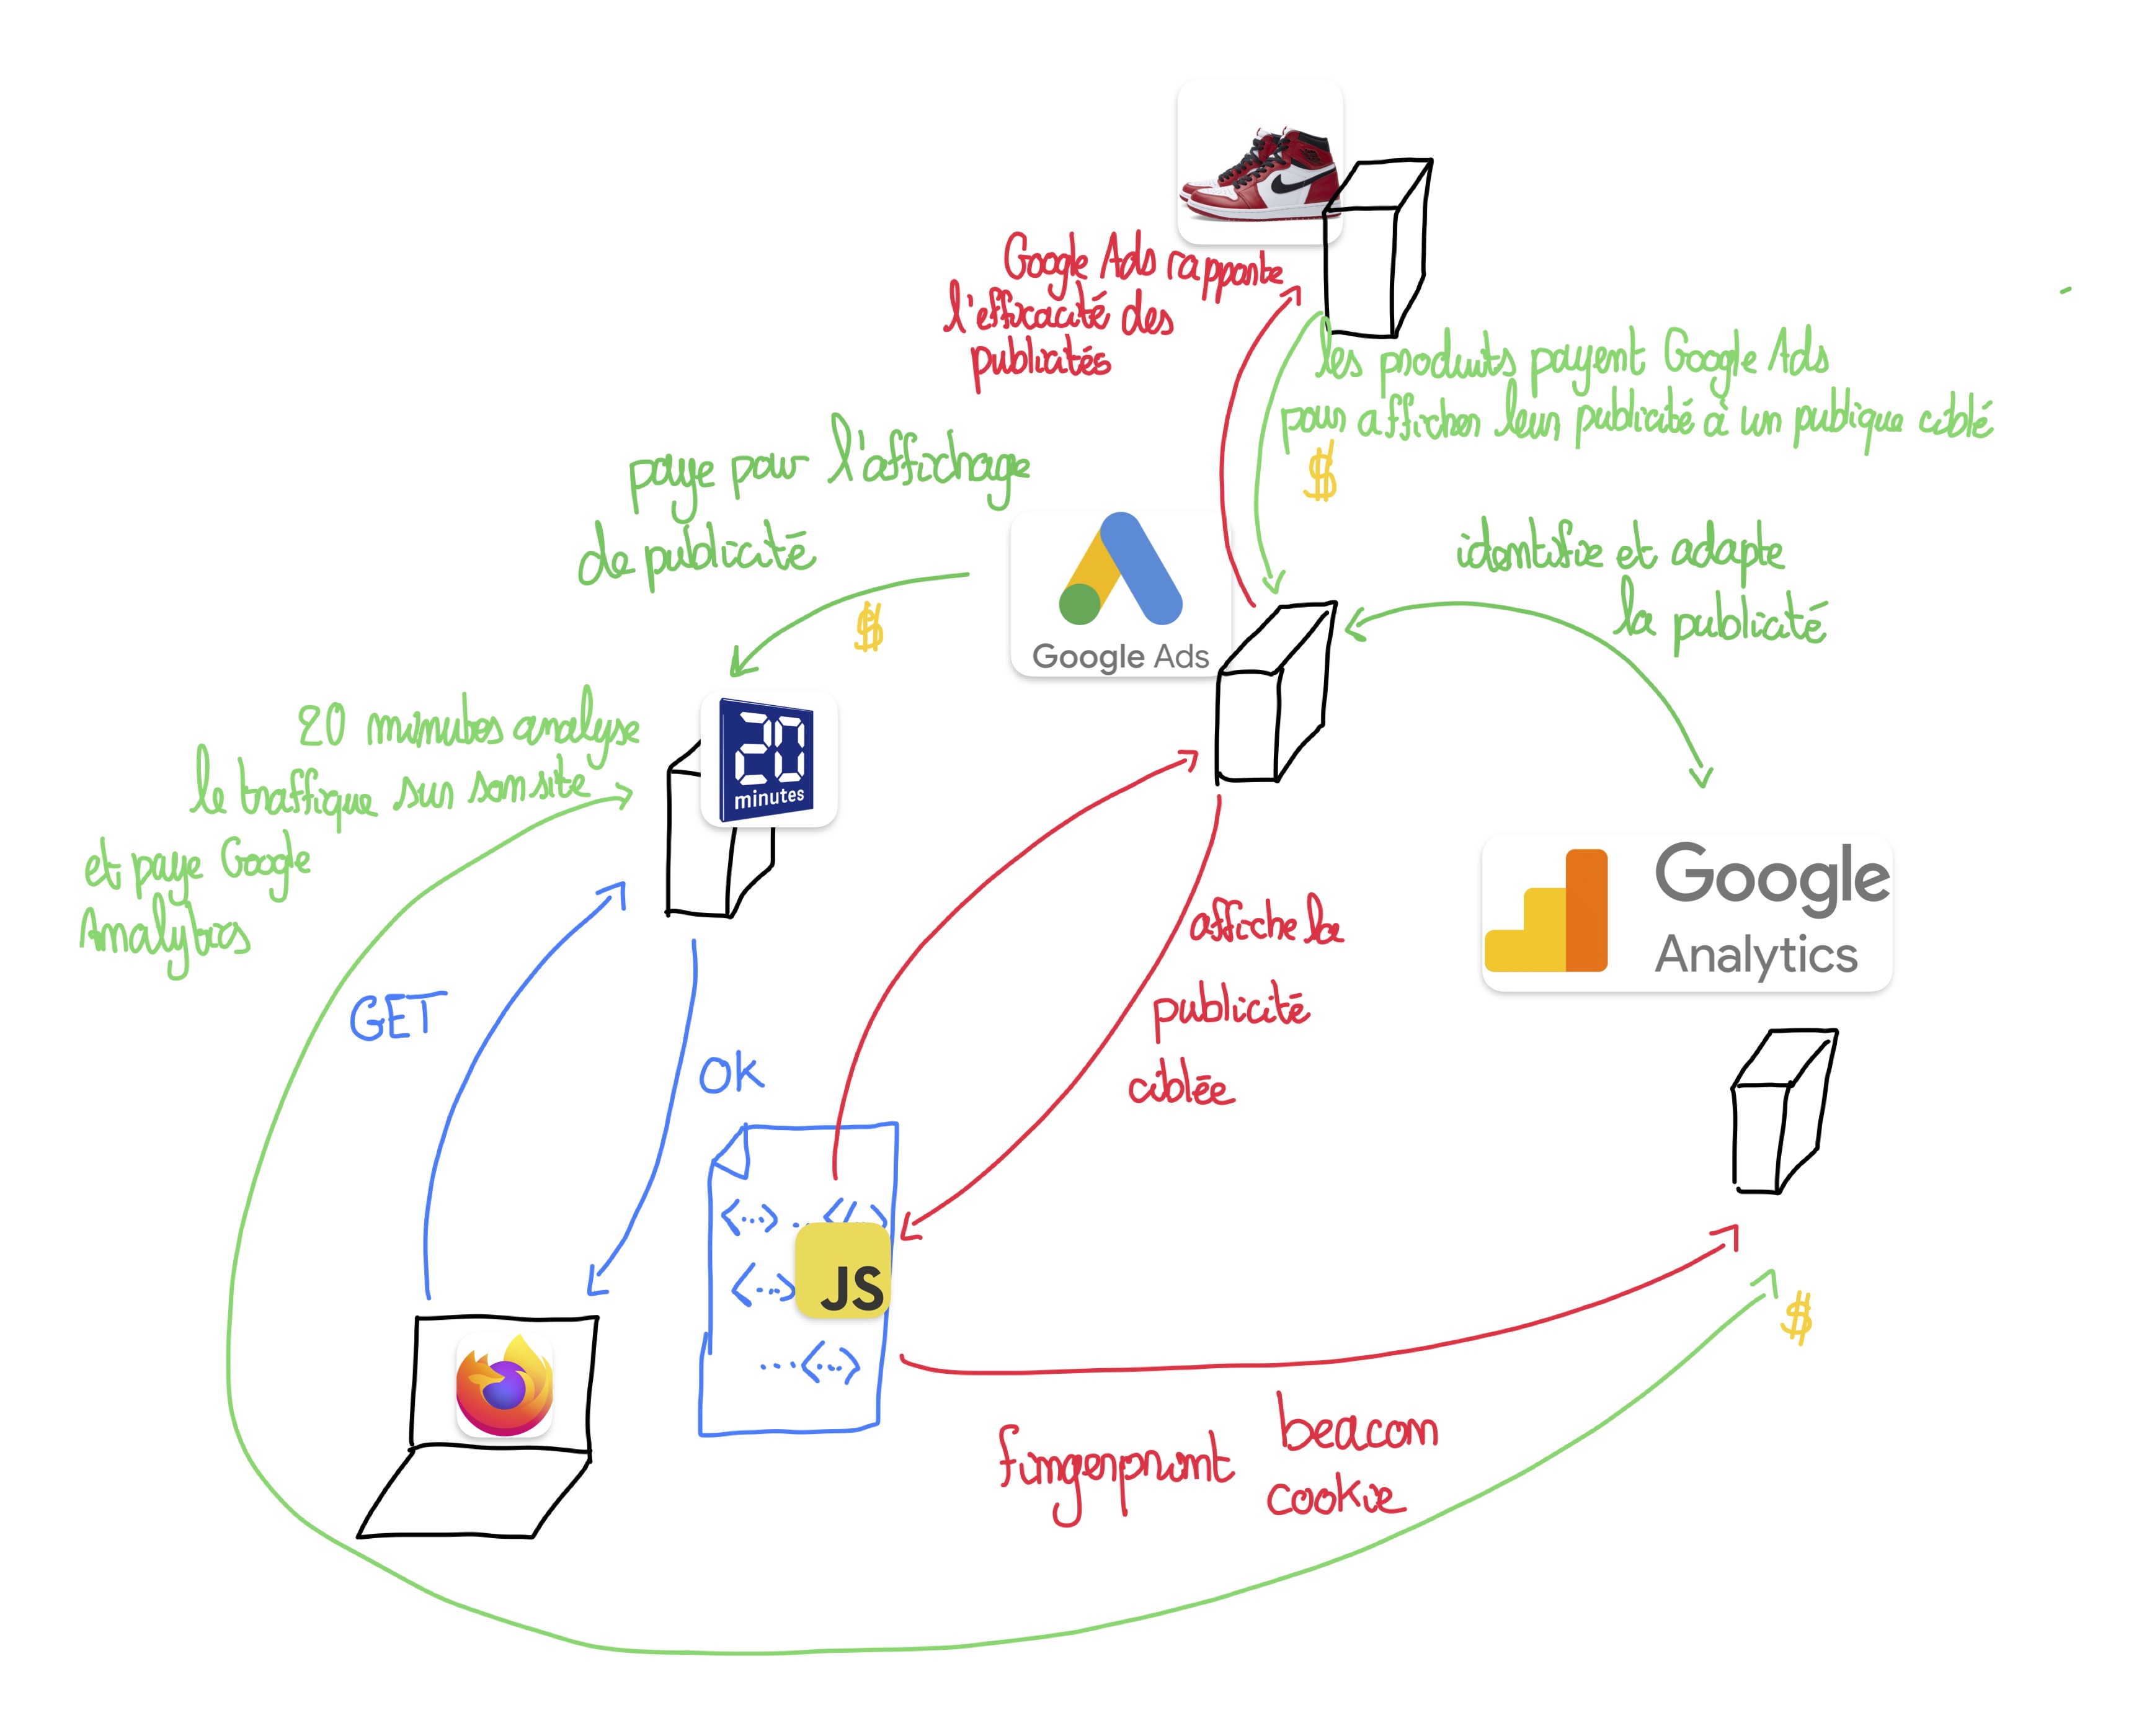 Google Ads rapporte
l'efficacité des
publicités
les produits payent Google Ads
pour afficher leur publicité à un publique ciblé
$
paye pour l'affichage
de publicité
$
identifie et adapte
la publicité
Google Ads
20 minutes analyse
le traffique sur son site
et paye Google
Analytics
20
minutes
Google
Analytics
affiche la
publicité
ciblée
GET
OK
<...>...</>
<...>
JS
...<...>
$
fingerprint
beacon
cookie